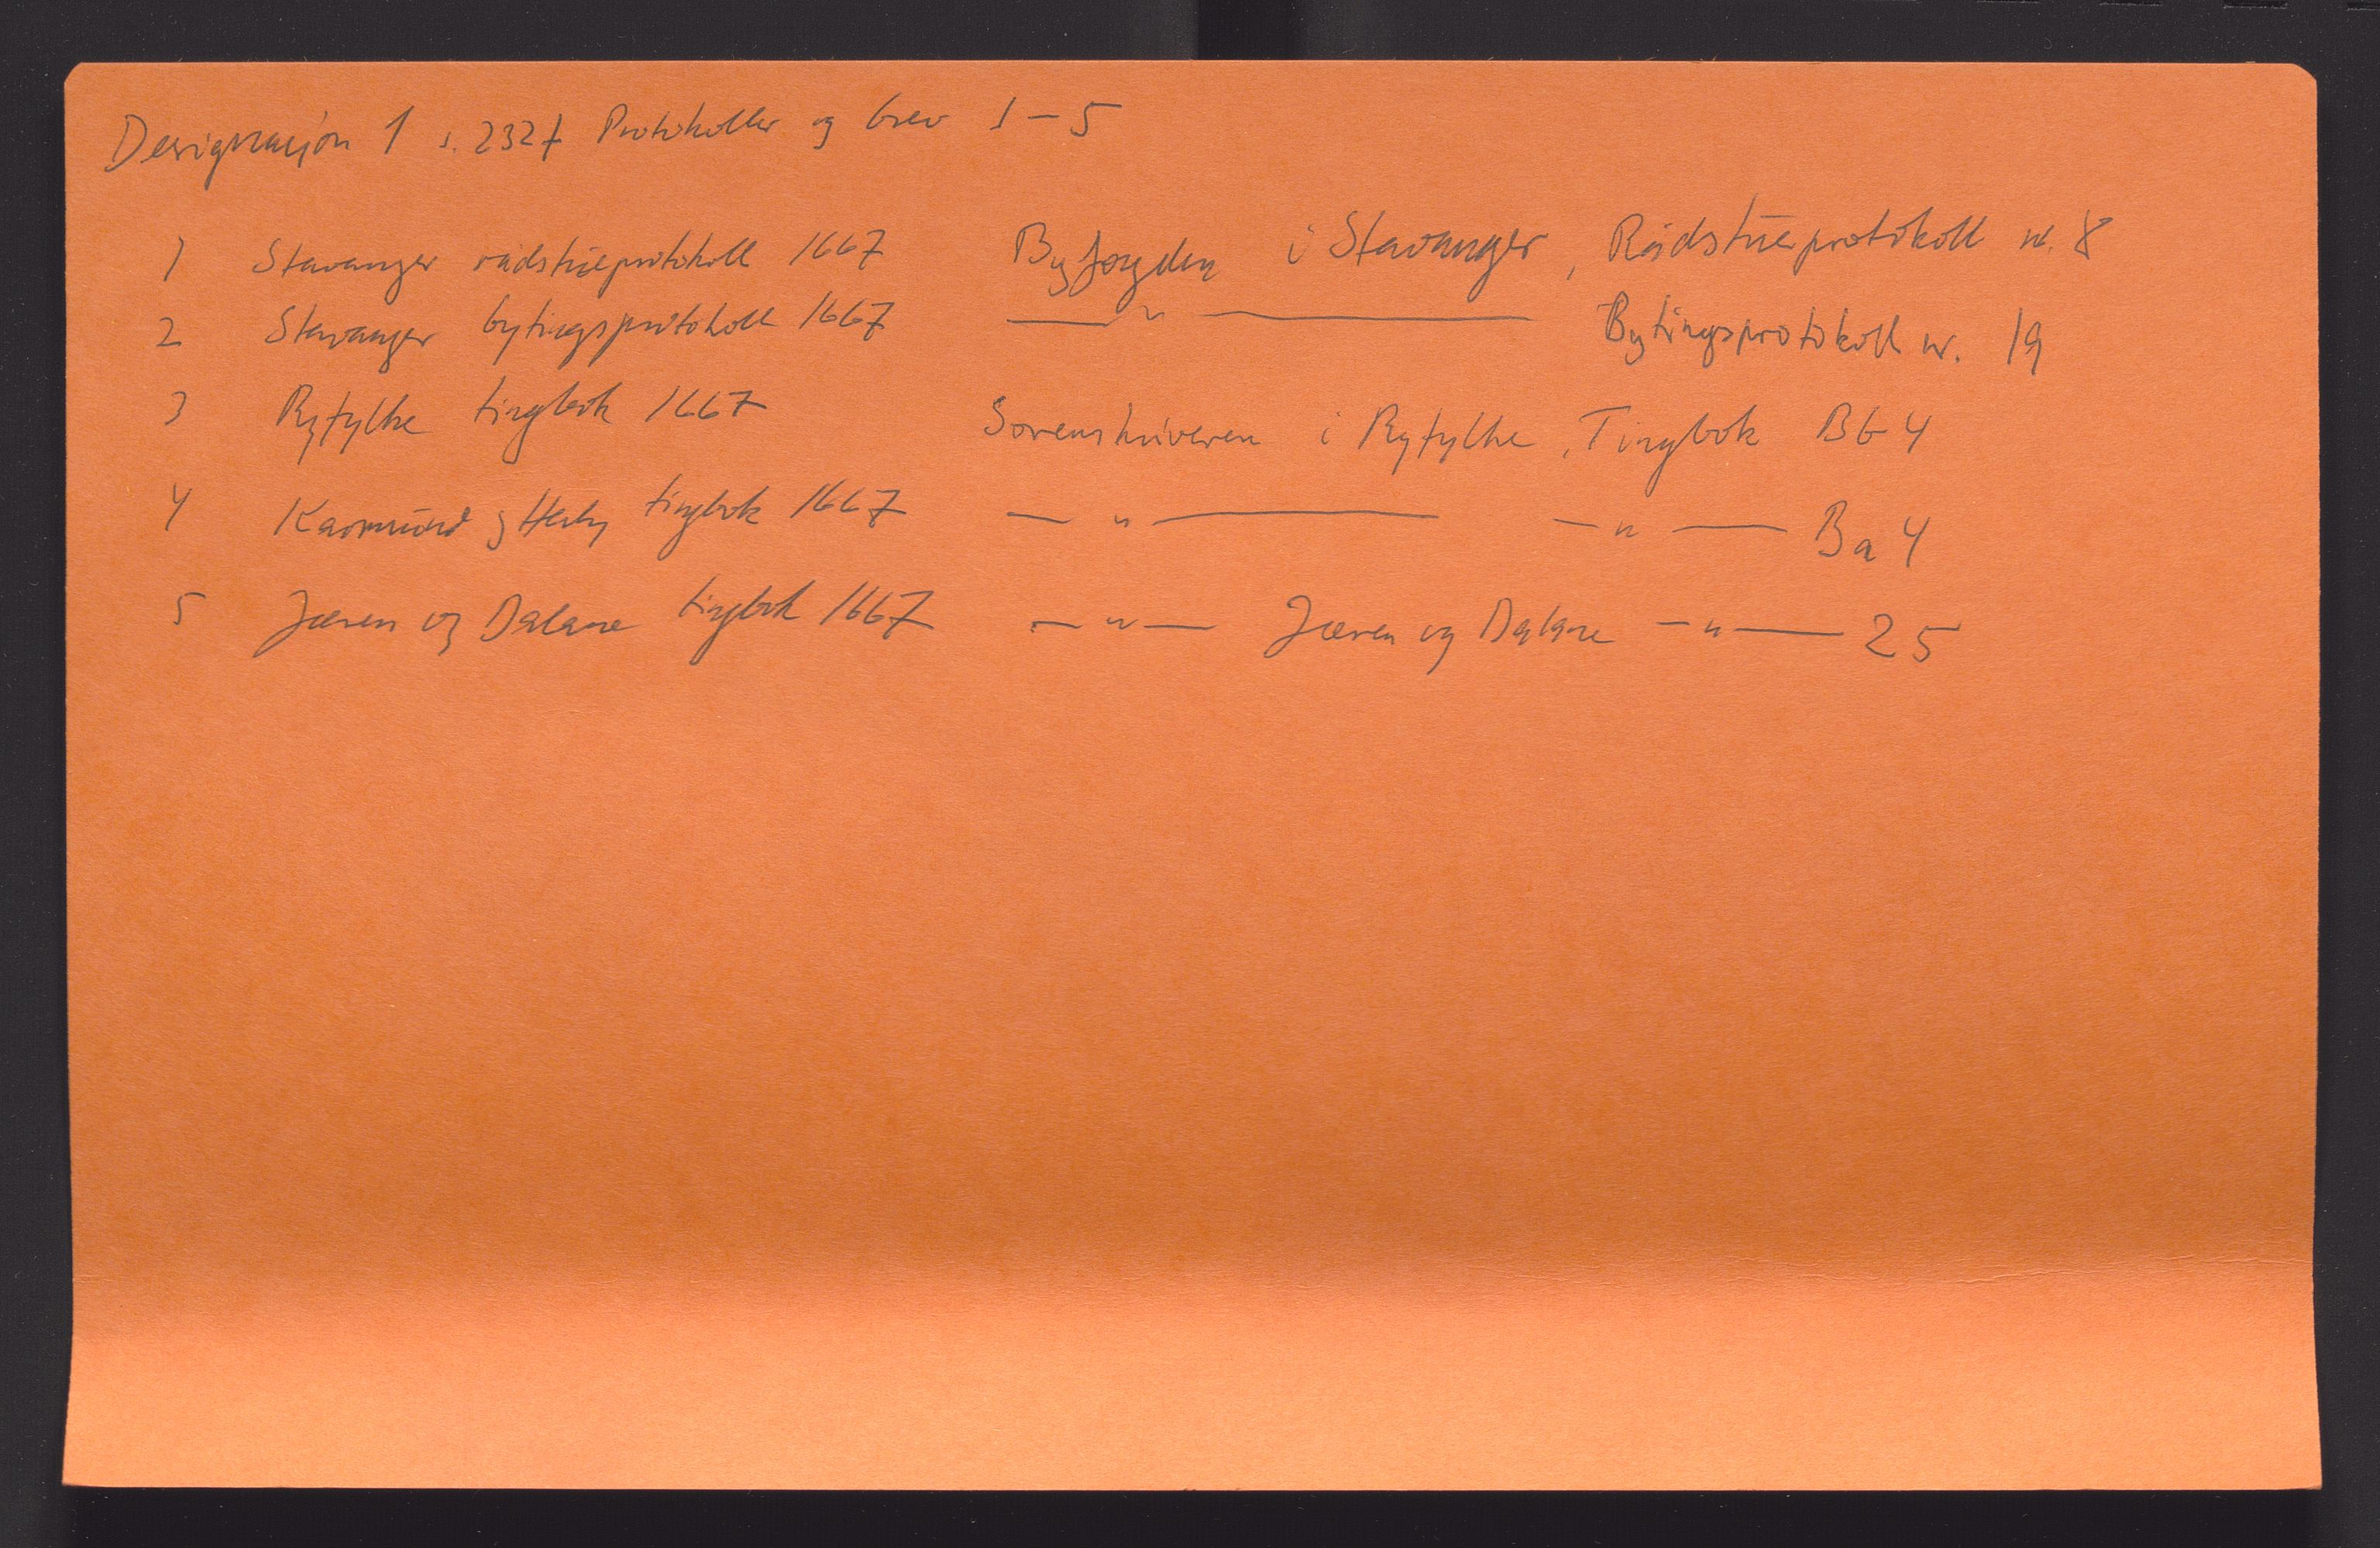 Designasjon 1 s. 232f Protokoller og brev 1 – 5
1 Stavanger rådstueprotokoll 1667 Byfogden i Stavanger, Rådstueprotokoll nr. 8
2 Stavanger bytingsprotokoll 1667 — " — Bytingsprotokoll nr. 19
3 Ryfylke tingbok 1667 Sorenskriveren i Ryfylke, Tingbok Bb 4
4 Karmsund og tingbok 1667 — " — — " — Ba 4
5 Jæren og Dalane tingbok 1667 — " — Jæren og Dalane — " — 25